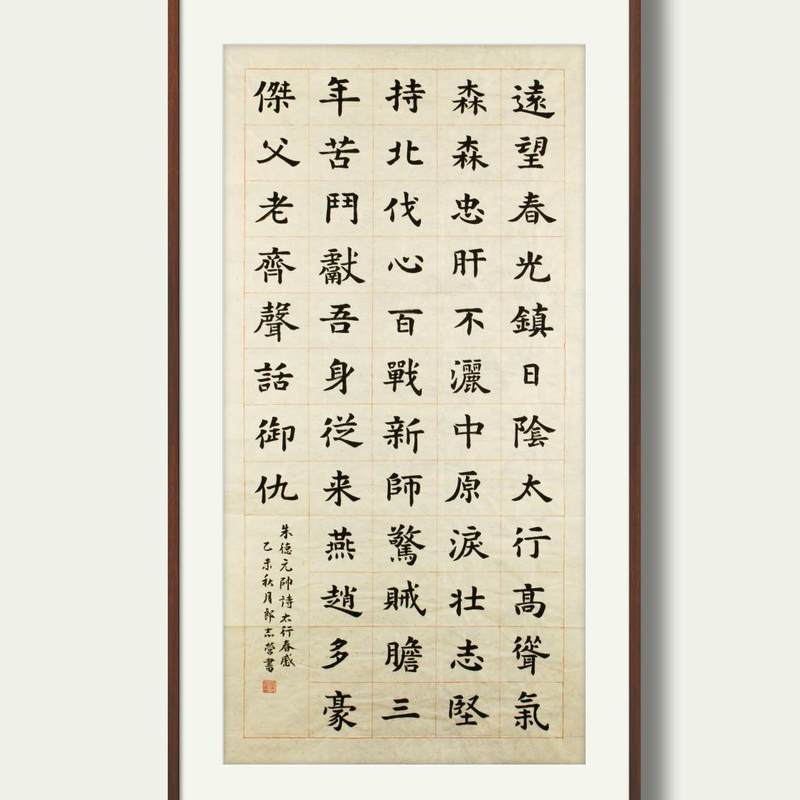 遠望春光鎮日陰太行高聳氣
森森忠肝不灑中原淚壯志堅
持北伐心百戰新師驚賊膽三
年苦鬥獻吾身従来燕趙多豪
傑父老齊聲話御仇
朱德元帥詩太行春感
乙未秋月郎志營書